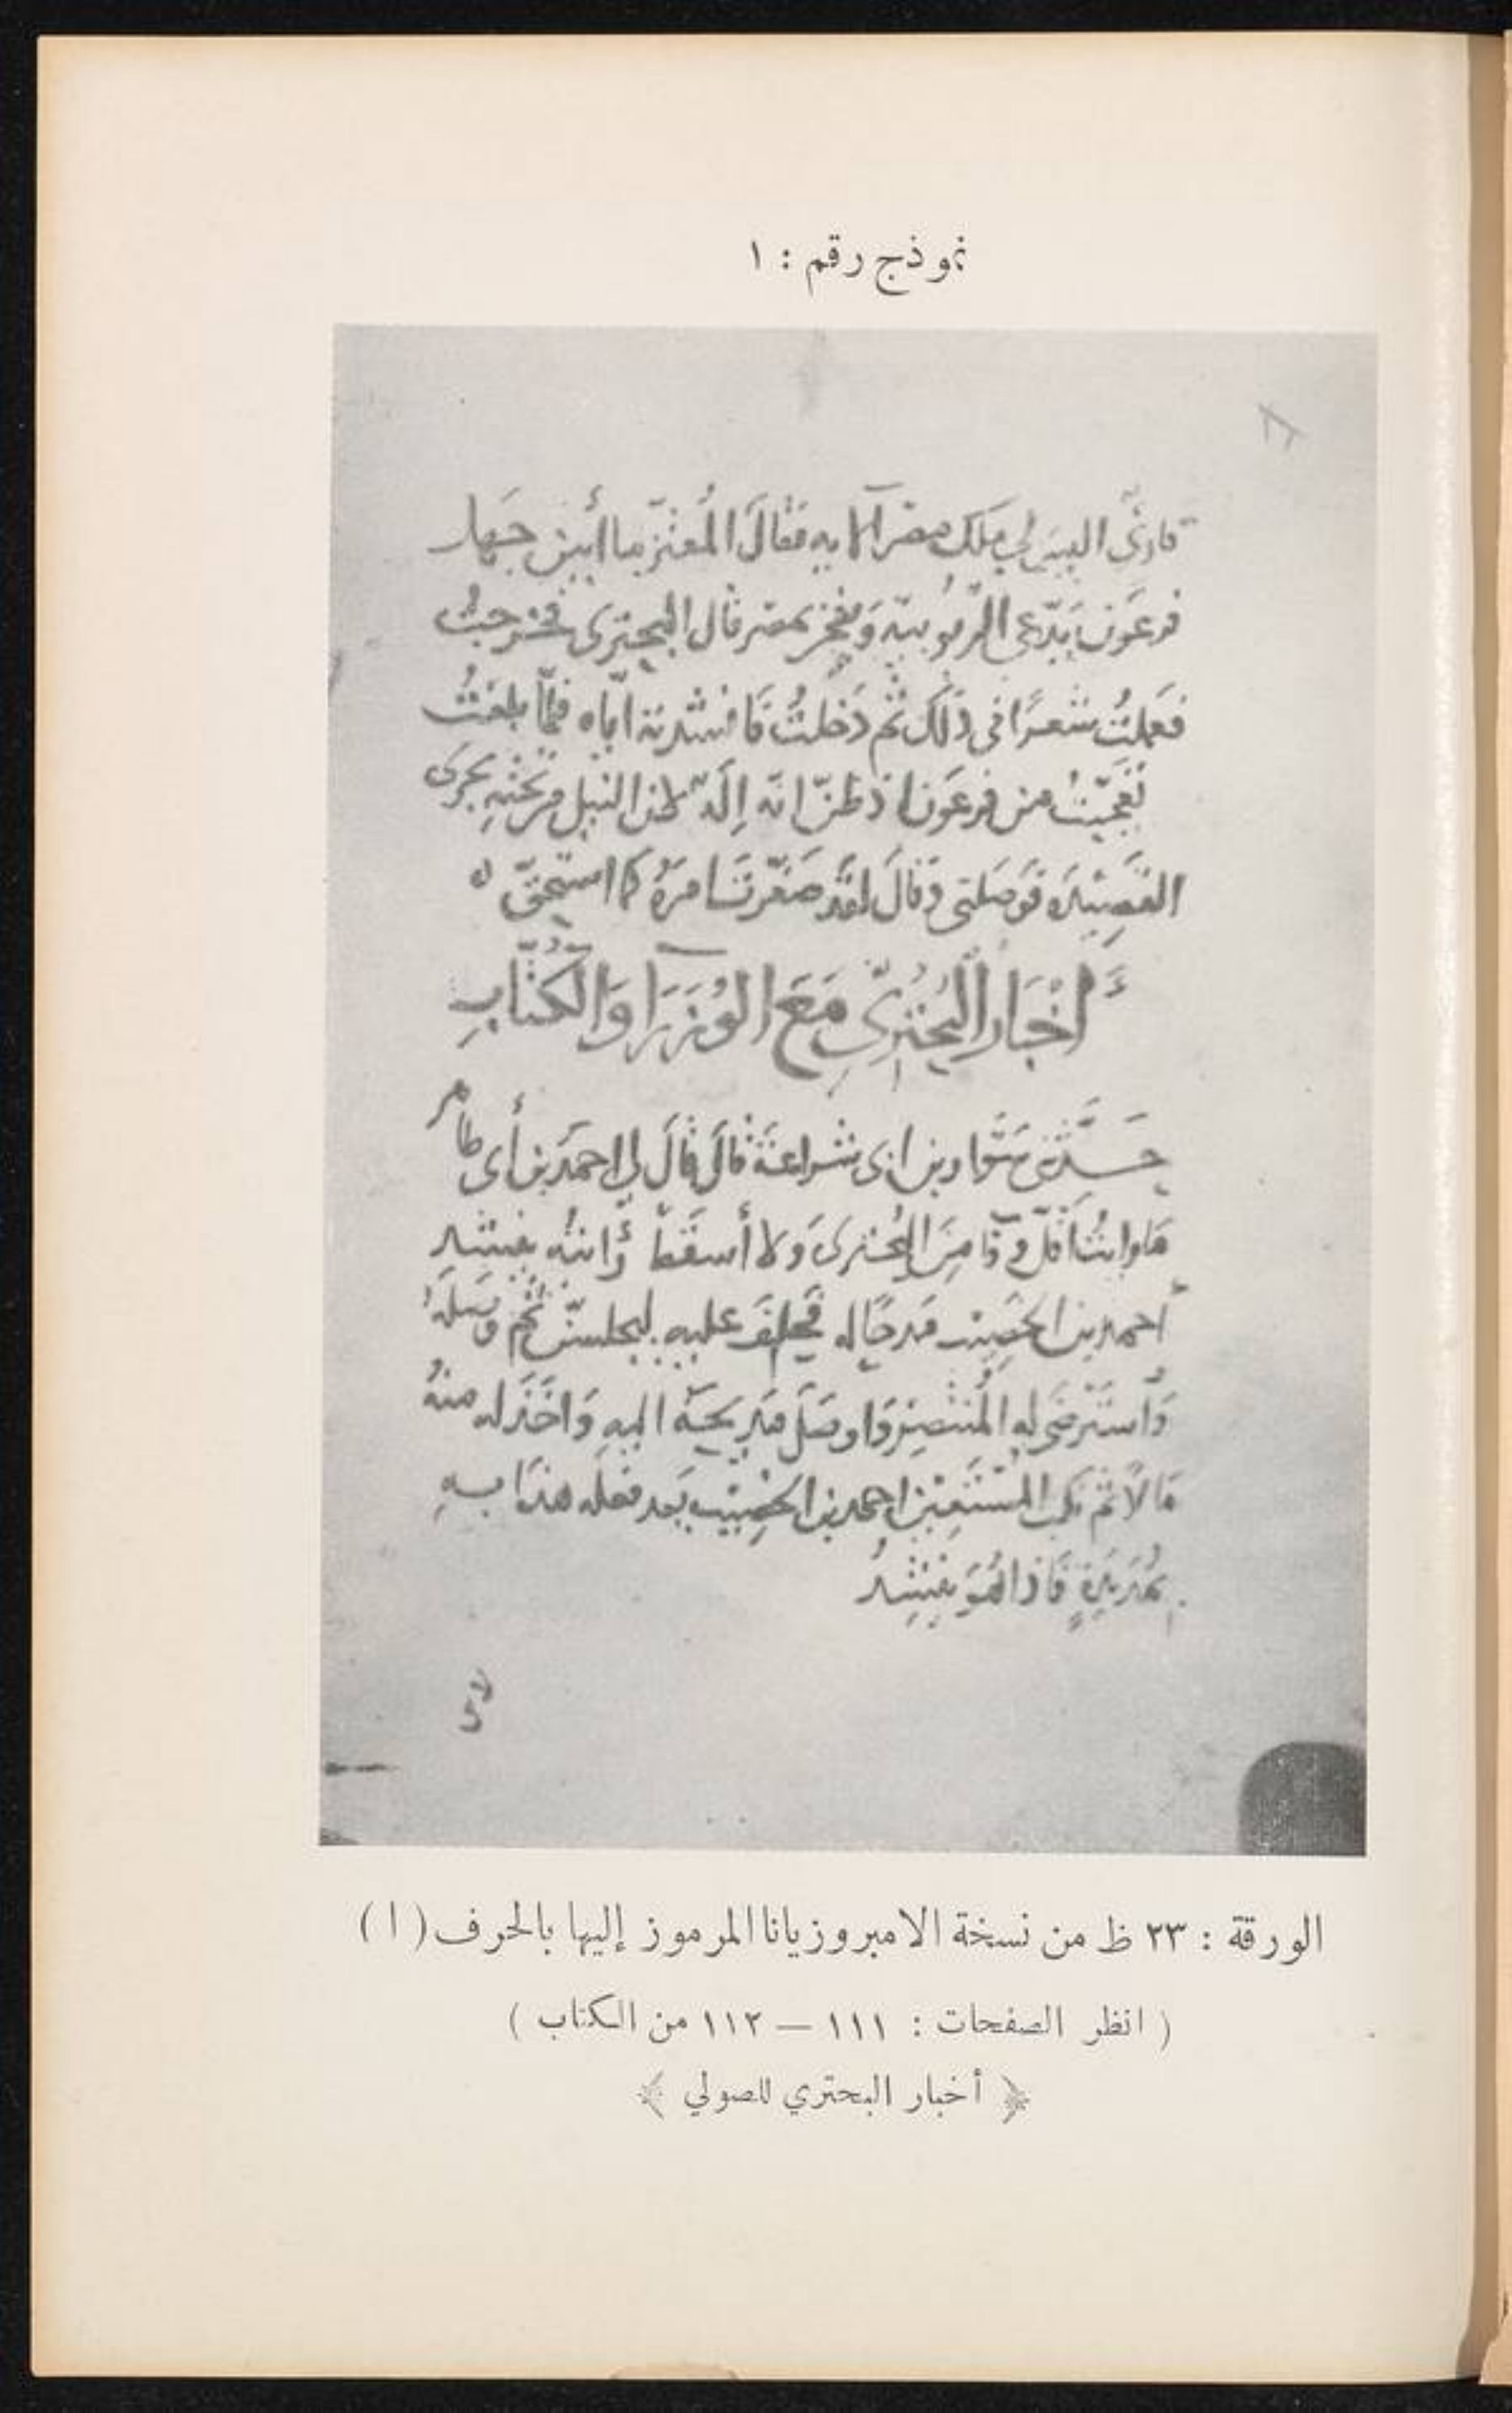 نموذج رقم : ١
قارئ أليس لي ملك مصر الآيه فقال المعتز ما أبين جهل
فرعون يدّعي الربوبية ويفخر بمصر قال البحتري فخرجت
فعملت شعرًا في ذلك ثم دخلت فانشدته اياه فلمّا بلغت
تعجّبت من فرعون اذ ظنّ انه إله لان النيل من تحته يجرى
القصيدة فوصلني وقال لقد صغّرت امره كما استحق
أخبار البحتري مع الوزرا والكتّاب
حدّثني سوّار بن ابى شراعة قال قال لي احمد بن أبى طاهر
ما رايت أقلّ وفآ من البحترى ولا أسقط رأيته ينشد
أحمد بن الخصيب مدحًا له فحلف عليه ليجلسنّ ثم وصله
وأسترضى له المنتصر واوصل مديحه اليه واخذ له منه
مالاً ثم نكب المستعين احمد بن الخصيب بعد فعله هذا به
بمُدَيدة فاذا هو ينشد
الورقة : ٢٣ ظ من نسخة الامبروزيانا المرموز إليها بالحرف ( ا )
( انظر الصفحات : ١١١ — ١١٢ من الكتاب )
﴿ أخبار البحتري للصولي ﴾